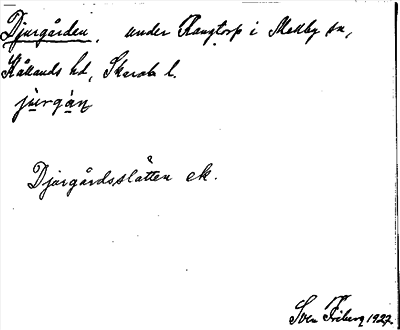 Djurgården, under Rangtorp i Mellby sn,
Kållands hd, Skarab. l.
jùrgàn
Djurgårdsslätten ek.
Sven Friberg 1927